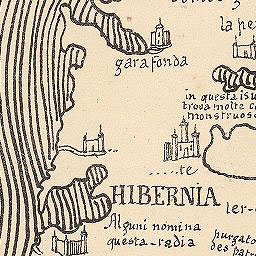 la pe
garafonda
in questa isu
trova molte c
monstruose
.....te
HIBERNIA
ler-
Alguni nomina
questa-radia
purgato
des patr